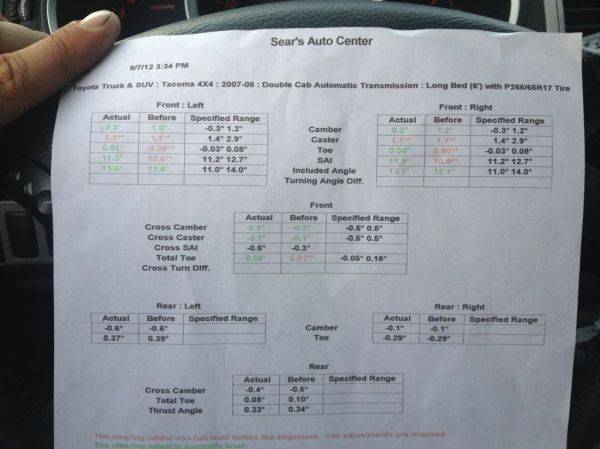 Sear's Auto Center
8/7/12 3:34 PM
Toyota Truck & SUV : Tacoma 4X4 : 2007-08 : Double Cab Automatic Transmission : Long Bed (6') with P265/65R17 Tire
Front : Left
Actual Before Specified Range
0.3° 1.0° -0.3° 1.2°
1.1°* 1.1°* 1.4° 2.9°
0.01° -0.29°* -0.03° 0.08°
11.3° 10.6°* 11.2° 12.7°
11.6° 11.6° 11.0° 14.0°
Camber
Caster
Toe
SAI
Included Angle
Turning Angle Diff.
Front : Right
Actual Before Specified Range
0.2° 1.2° -0.3° 1.2°
1.1°* 1.1°* 1.4° 2.9°
0.04° 0.90°* -0.03° 0.08°
11.9° 10.9°* 11.2° 12.7°
12.1° 12.1° 11.0° 14.0°
Front
Actual Before Specified Range
Cross Camber 0.1° -0.2° -0.5° 0.5°
Cross Caster -0.1° -0.1° -0.5° 0.5°
Cross SAI -0.6° -0.3°
Total Toe 0.06° 0.61°* -0.05° 0.16°
Cross Turn Diff.
Rear : Left
Actual Before Specified Range
-0.6° -0.6°
0.37° 0.39°
Camber
Toe
Rear : Right
Actual Before Specified Range
-0.1° -0.1°
-0.29° -0.29°
Rear
Actual Before Specified Range
Cross Camber -0.4° -0.5°
Total Toe 0.08° 0.10°
Thrust Angle 0.33° 0.34°
The steering wheel was not level before the alignment. Toe adjustments are required.
The steering wheel is currently level.